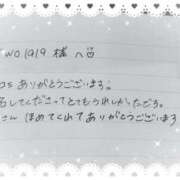 wo.1919 様へ
ありがとうございます。
してくださってとてもうれしかったです。
さん ほめてくれてありがとうございます